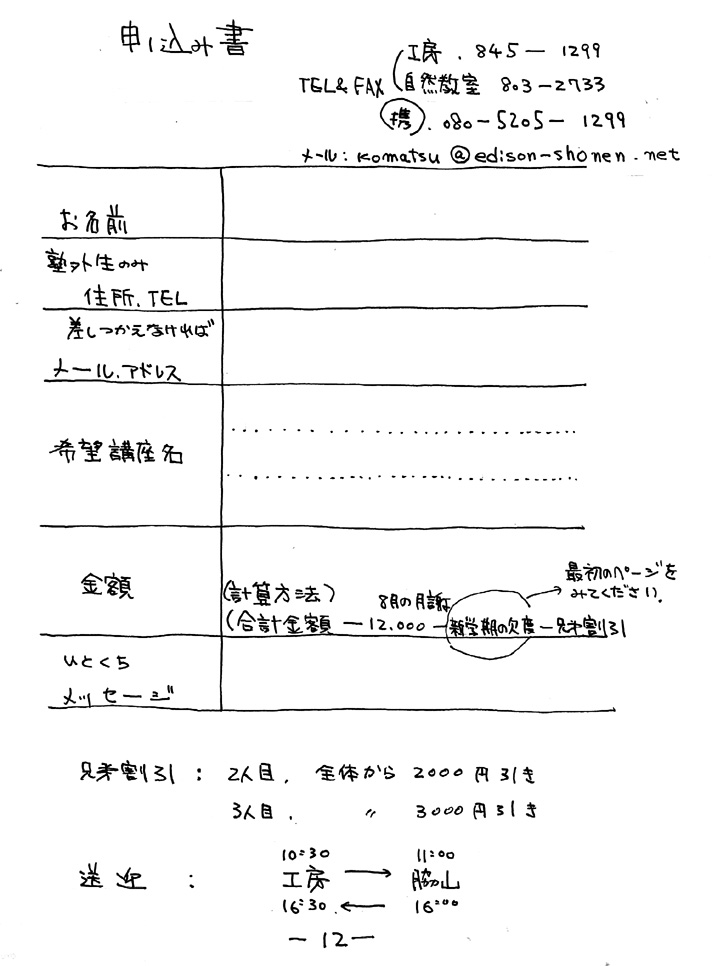 申し込み書
工房.845-1299
TEL&FAX
自然教室 803-2733
携.080-5205-1299
メール:komatsu@edison-shonen.net
お名前
塾外生のみ
住所.TEL
差しつかえなければ
メール.アドレス
希望講座名
金額
(計算方法)
最初のページを
みてください.
8月の月謝
(合計金額-12.000-新学期の欠席-兄弟割引
ひとくち
メッセージ
兄弟割引: 2人目. 全体から2000円引き
3人目. 〃 3000円引き
10:30 11:00
送迎: 工房 → 脇山
16:30 ← 16:00
-12-